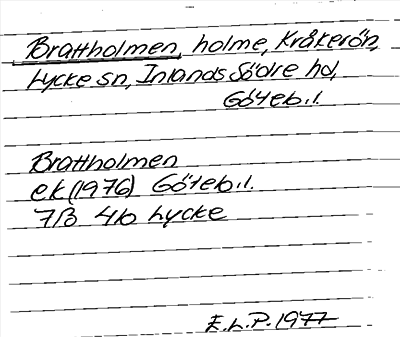 Brattholmen, holme, Kråkerön,
Lycke sn, Inlands Södre hd,
Göteb.l.
Brattholmen
ek (1976) Göteb.l.
7B 4b Lycke
E.L.P. 1977